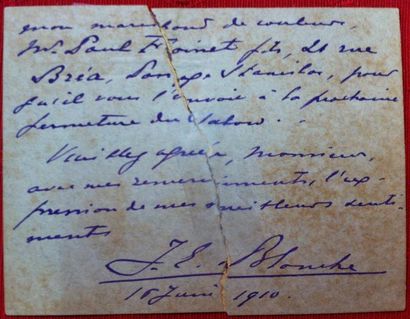 mon marchand de couleurs,
Mr Paul Foinet fils, 21 rue
Bréa, Passage Stanislas, pour
qu'il vous l'envoie à la prochaine
fermeture du Salon.
Veuillez agréer, Monsieur,
avec mes remerciements, l'ex-
pression de mes meilleurs senti-
ments
J. E. Blanche
16 Juin 1910.